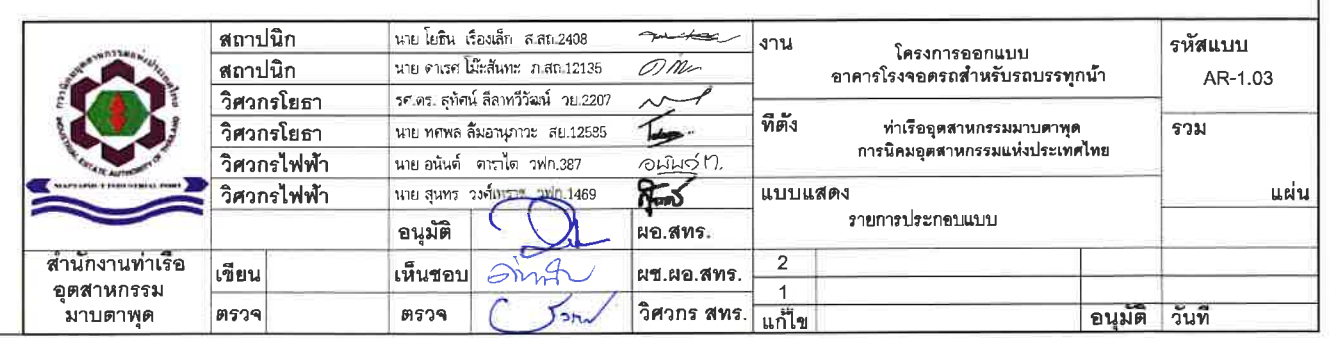 การนิคมอุตสาหกรรมแห่งประเทศไทย
INDUSTRIAL ESTATE AUTHORITY OF THAILAND
MAPTAPHUT INDUSTRIAL PORT
สำนักงานท่าเรือ
อุตสาหกรรม
มาบตาพุด
สถาปนิก นาย โยธิน เรืองเล็ก ส.สถ.2408
สถาปนิก นาย ดาเรศ โม๊ะสันทะ ภ.สถ.12135
วิศวกรโยธา รศ.ดร. สุทัศน์ ลีลาทวีวัฒน์ วย.2207
วิศวกรโยธา นาย ทศพล ลิ้มอานุภาวะ สย.12585
วิศวกรไฟฟ้า นาย อนันต์ ตาราไต วฟก.387 อนันต์ ต.
วิศวกรไฟฟ้า นาย สุนทร วฟก.1469
อนุมัติ ผอ.สทร.
เขียน เห็นชอบ ผช.ผอ.สทร.
ตรวจ ตรวจ วิศวกร สทร.
งาน โครงการออกแบบ
อาคารโรงจอดรถสำหรับรถบรรทุกน้ำ
ที่ตั้ง ท่าเรืออุตสาหกรรมมาบตาพุด
การนิคมอุตสาหกรรมแห่งประเทศไทย
แบบแสดง
รายการประกอบแบบ
2
1
แก้ไข อนุมัติ วันที่
รหัสแบบ
AR-1.03
รวม
แผ่น